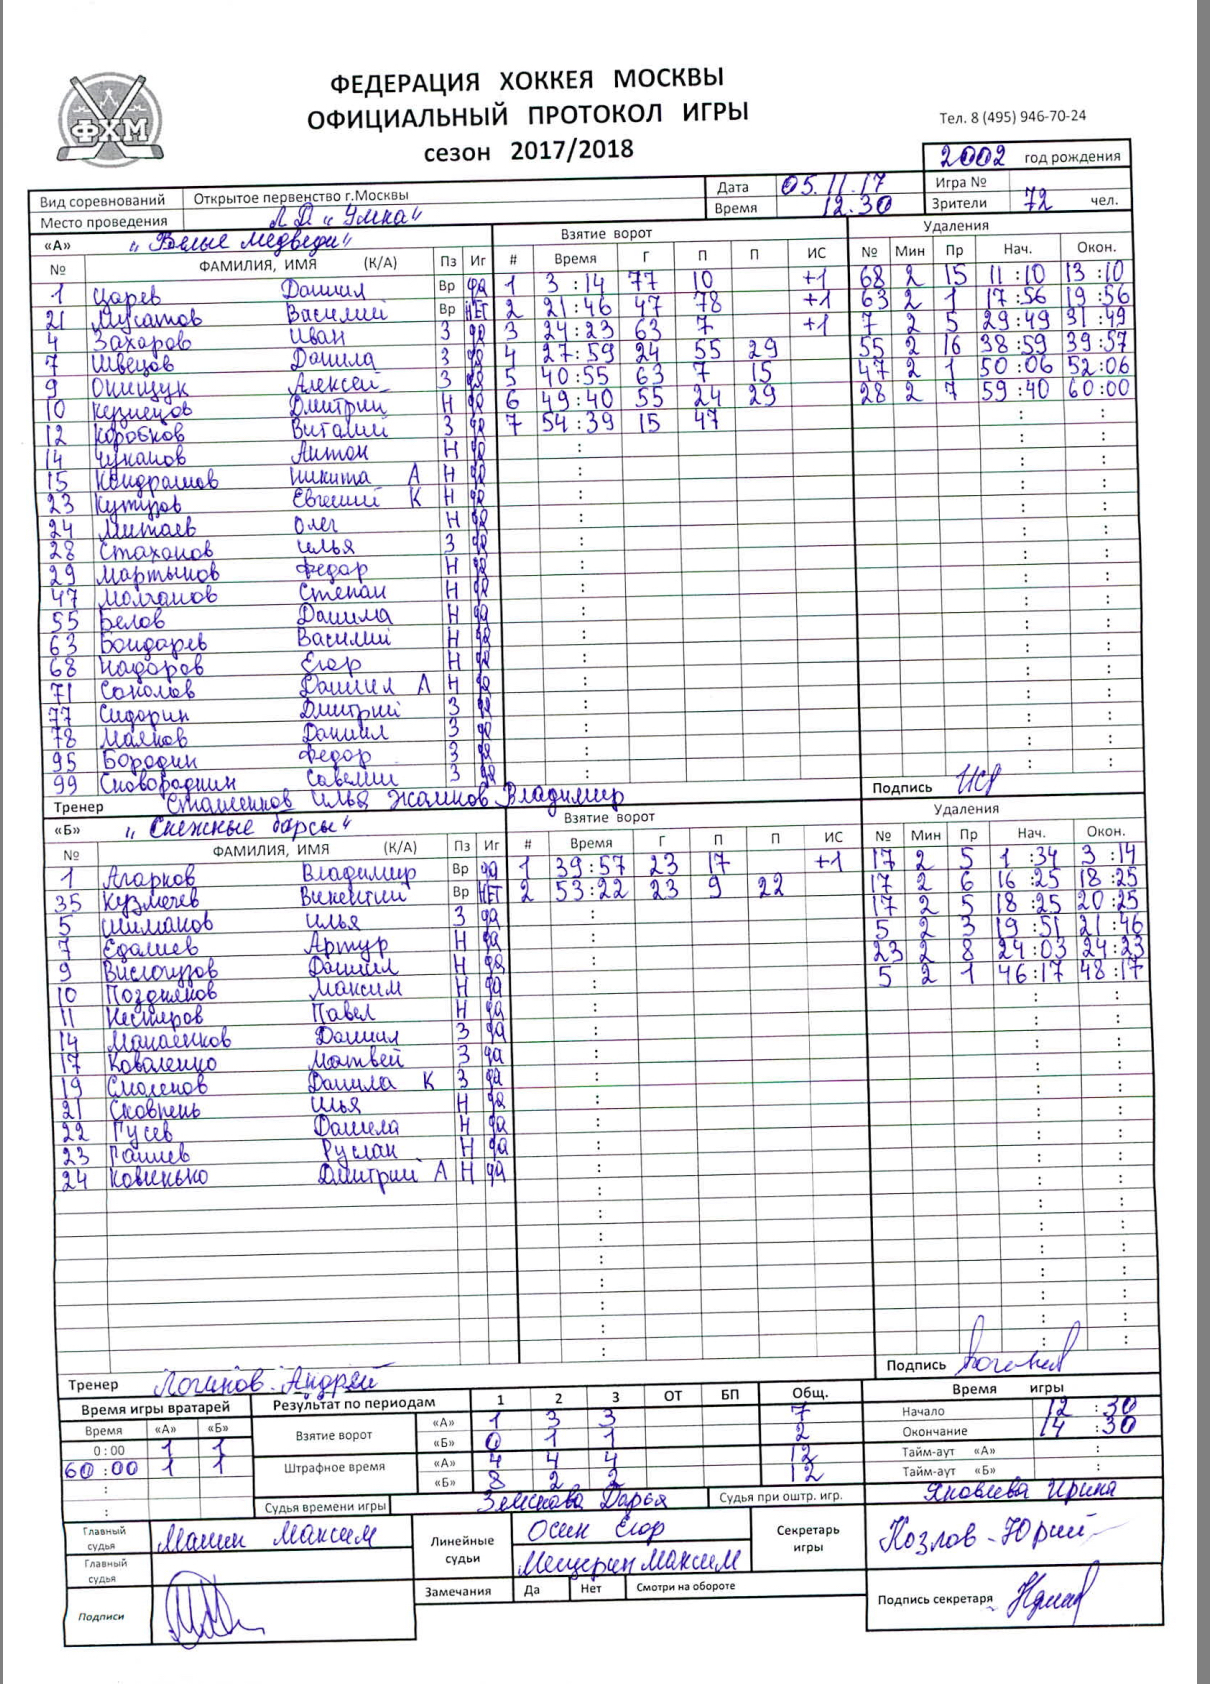 ФЕДЕРАЦИЯ ХОККЕЯ МОСКВЫ
ОФИЦИАЛЬНЫЙ ПРОТОКОЛ ИГРЫ
сезон 2017/2018
ФХМ
Тел. 8 (495) 946-70-24
2002 год рождения
Вид соревнований Открытое первенство г.Москвы Дата 05.11.17 Игра №
Место проведения Л.Д. "Умка" Время 12.30 Зрители 72 чел.
«А» "Белые медведи" Взятие ворот Удаления
№ ФАМИЛИЯ, ИМЯ (К/А) Пз Иг # Время Г П П ИС № Мин Пр Нач. Окон.
1 Царев Даниил Вр да 1 3:14 77 10 +1 68 2 15 11:10 13:10
21 Мусатов Василий Вр НЕТ 2 21:46 47 78 +1 63 2 1 17:56 19:56
4 Захаров Иван З да 3 24:23 63 7 +1 7 2 5 29:49 31:49
7 Швецов Данила З да 4 27:59 24 55 29 55 2 16 38:59 39:57
9 Онищук Алексей З да 5 40:55 63 7 15 47 2 1 50:06 52:06
10 Кузнецов Дмитрий Н да 6 49:40 55 24 29 28 2 7 59:40 60:00
12 Коробков Виталий З да 7 54:39 15 47
14 Чуканов Антон Н да
15 Кондрашов Никита А Н да
23 Кутузов Евгений К Н да
24 Митаев Олег Н да
28 Стаханов Илья З да
29 Мартынов Федор Н да
47 Молчанов Степан Н да
55 Белов Данила Н да
63 Бондарев Василий Н да
68 Надоров Егор Н да
71 Соколов Даниил А Н да
77 Сидорин Дмитрий З да
78 Маяков Даниил З да
95 Бородин Федор З да
99 Сковороднин Савелий З да
Тренер Сташенков Илья Жалнов Владимир Подпись
«Б» "Снежные барсы" Взятие ворот Удаления
№ ФАМИЛИЯ, ИМЯ (К/А) Пз Иг # Время Г П П ИС № Мин Пр Нач. Окон.
1 Агарков Владимир Вр да 1 39:57 23 17 +1 17 2 5 1:34 3:14
35 Кузмичев Викентий Вр НЕТ 2 53:22 23 9 22 17 2 6 16:25 18:25
5 Шиманов Илья З да 17 2 5 18:25 20:25
7 Едалиев Артур Н да 5 2 3 19:51 21:46
9 Вислогузов Даниил Н да 23 2 8 24:03 24:23
10 Поздняков Максим Н да 5 2 1 46:17 48:17
11 Нестеров Павел Н да
14 Манаенков Даниил З да
17 Коваленко Матвей З да
19 Смоленов Данила К З да
21 Сковпень Илья Н да
22 Гусев Данила Н да
23 Ганиев Руслан Н да
24 Ковинько Дмитрий А Н да
Тренер Логинов Андрей Подпись
Время игры вратарей Результат по периодам 1 2 3 ОТ БП Общ. Время игры
Время «А» «Б» Взятие ворот «А» 1 3 3 7 Начало 12:30
0:00 1 1 «Б» 0 1 1 2 Окончание 14:30
60:00 1 1 Штрафное время «А» 4 4 4 12 Тайм-аут «А» :
: «Б» 8 2 2 12 Тайм-аут «Б» :
: Судья времени игры Зенкова Дарья Судья при оштр. игр. Яковлева Ирина
Главный судья Машин Максим Линейные судьи Осин Егор Секретарь игры Козлов Юрий
Главный судья Мещерин Максим
Подписи Замечания Да Нет Смотри на обороте Подпись секретаря